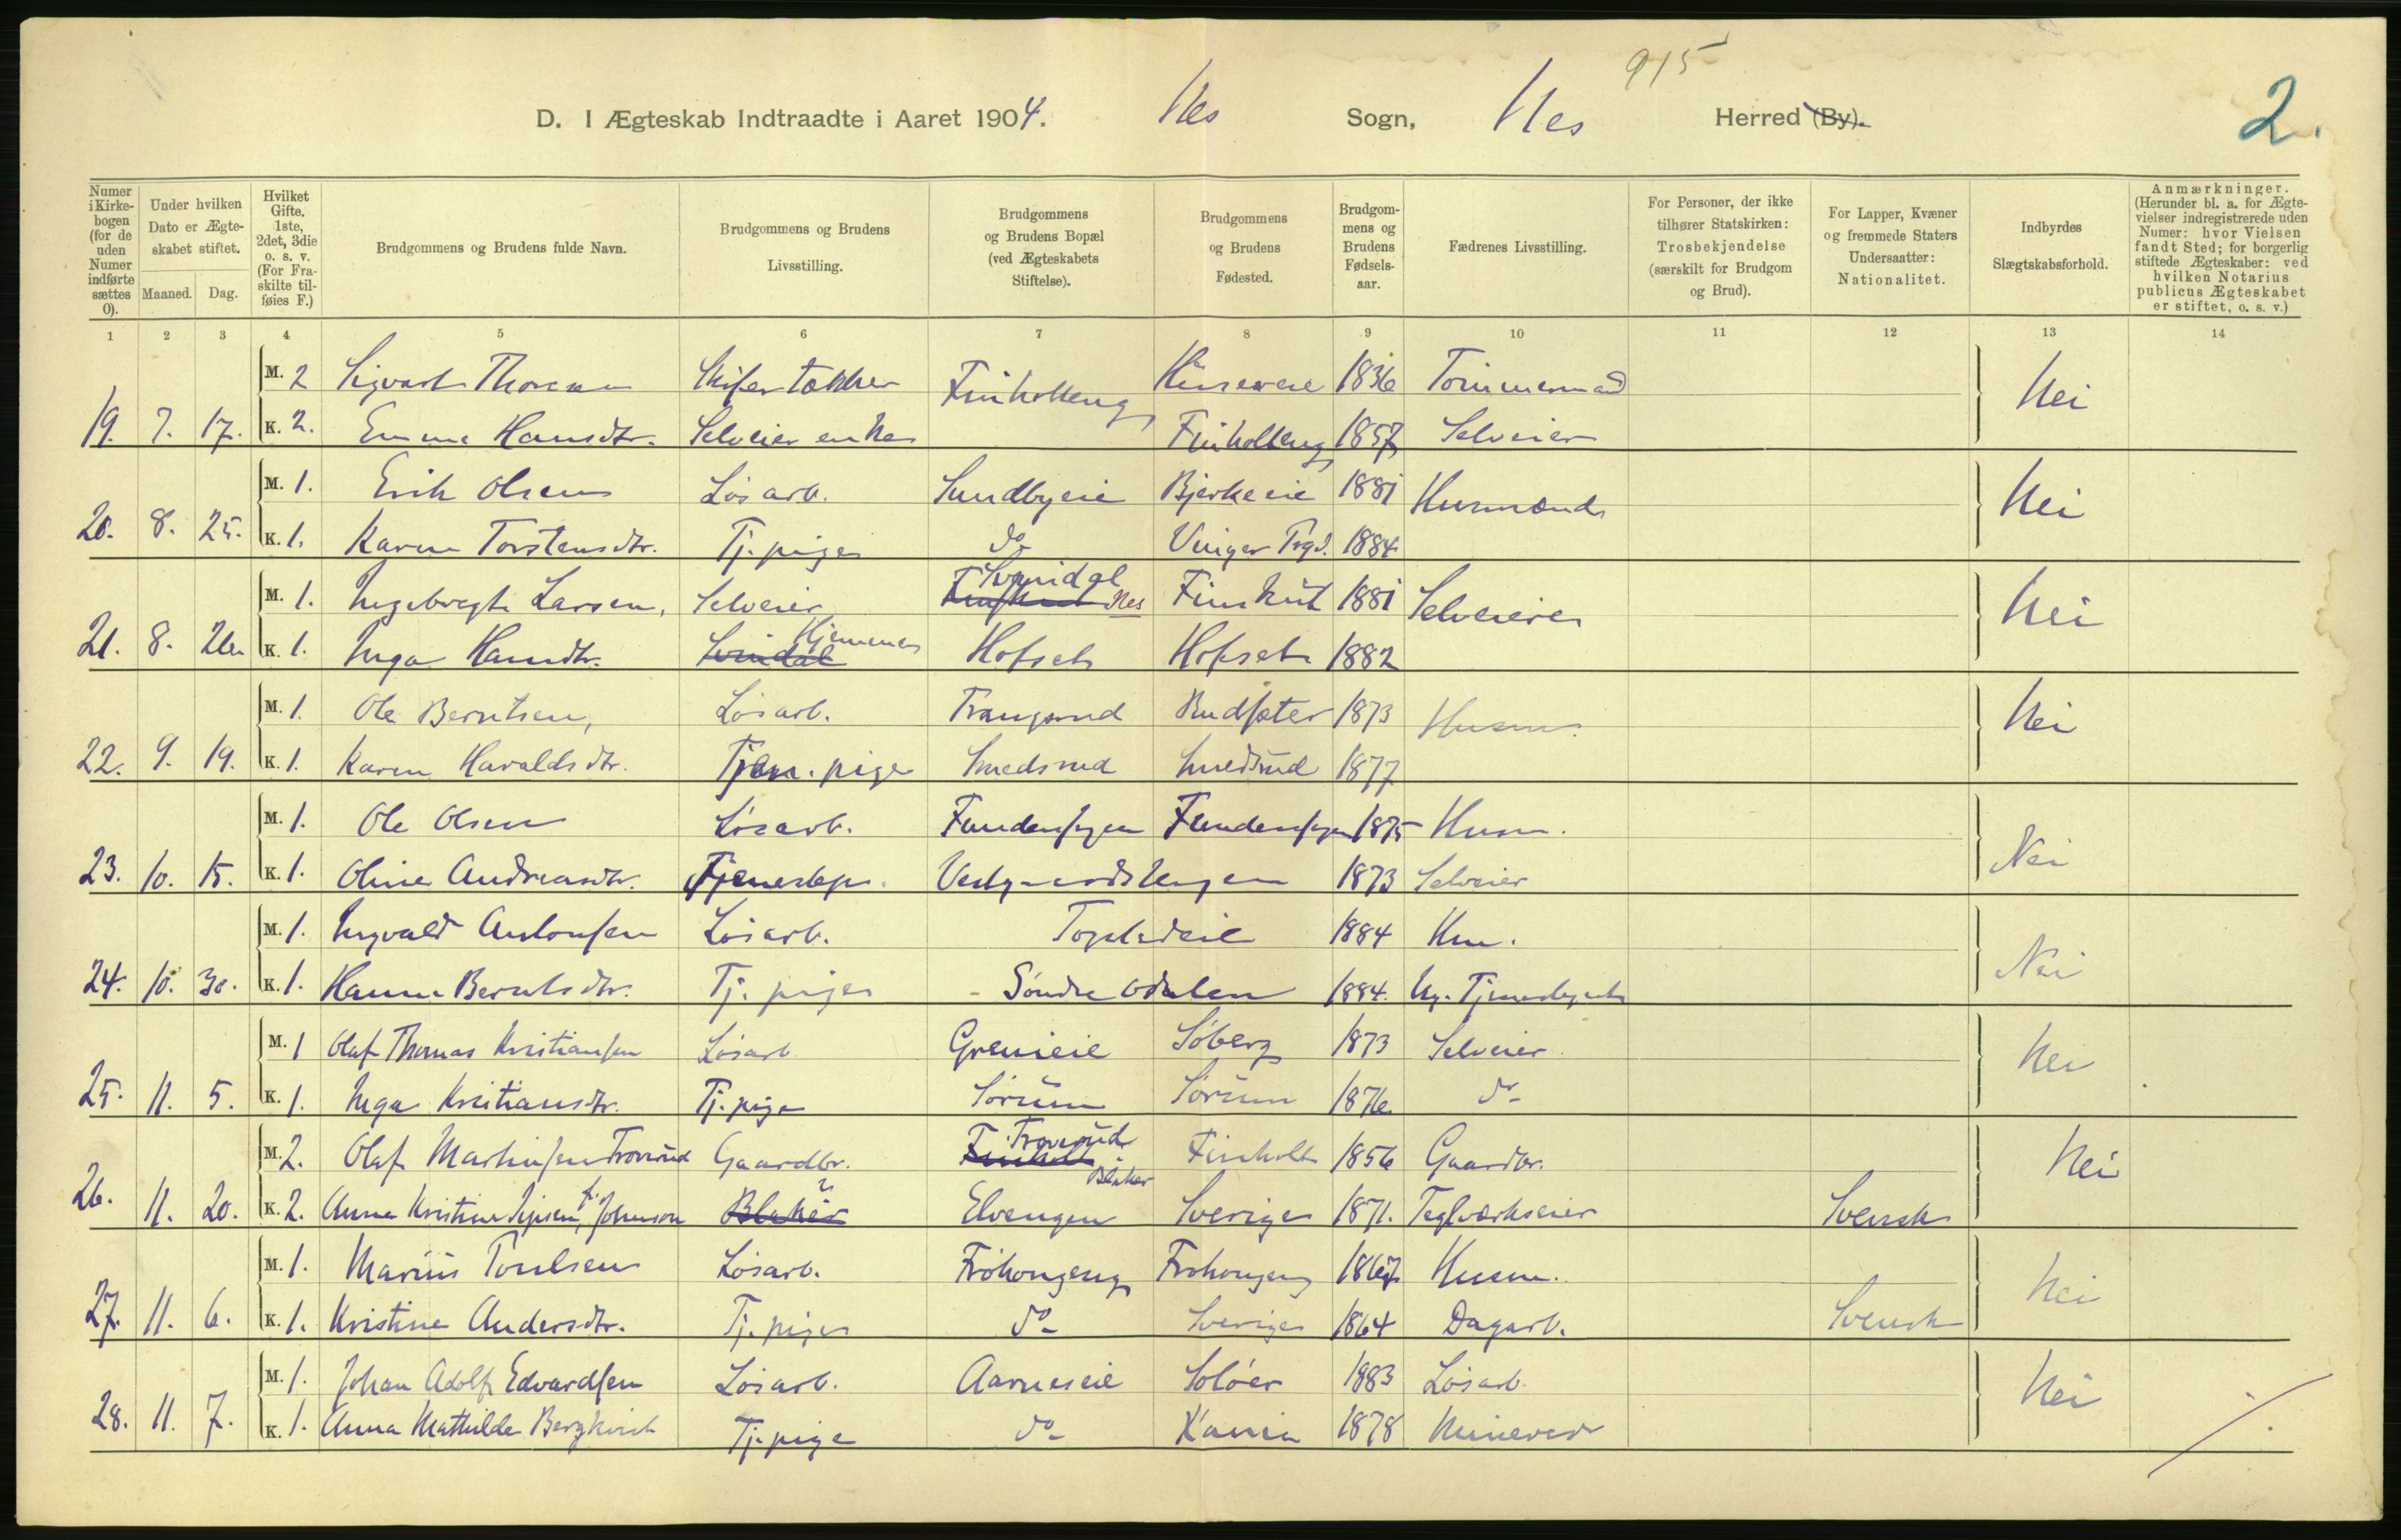 915
2.
D. I Ægteskab Indtraadte i Aaret 1904. Nes Sogn, Nes Herred (By).
Numer i Kirkebogen (for de uden Numer indførte sættes 0).
Under hvilken Dato er Ægteskabet stiftet.
Maaned. Dag.
Hvilket Gifte. 1ste, 2det, 3die o. s. v. (For Fraskilte tilføies F.)
Brudgommens og Brudens fulde Navn.
Brudgommens og Brudens Livsstilling.
Brudgommens og Brudens Bopæl (ved Ægteskabets Stiftelse).
Brudgommens og Brudens Fødested.
Brudgommens og Brudens Fødselsaar.
Fædrenes Livsstilling.
For Personer, der ikke tilhører Statskirken: Trosbekjendelse (særskilt for Brudgom og Brud).
For Lapper, Kvæner og fremmede Staters Undersaatter: Nationalitet.
Indbyrdes Slægtskabsforhold.
Anmærkninger. (Herunder bl. a. for Ægtevielser indregistrerede uden Numer: hvor Vielsen fandt Sted; for borgerlig stiftede Ægteskaber: ved hvilken Notarius publicus Ægteskabet er stiftet, o. s. v.)
1 2 3 4 5 6 7 8 9 10 11 12 13 14
M. 2 Sigvart Skifertækker Finholteng 1836 Tømmermand Nei
19. 7. 17. K. 2. Emma Hansdtr. Selveier enke Finholteng 1857 Selveier
M. 1. Erik Olsen Løsarb. Sundbyeie Bjerkeeie 1881 Husmænd Nei
20. 8. 25. K. 1. Karen Torstensdtr. Tj. pige do Vinger Prgd. 1884
M. 1. Ingebregt Larsen, Selveier Svindal Nes Finskut 1881 Selveiere Nei
21. 8. 26. K. 1. Inga Hansdtr. Svindal Hjemme Hofset Hofset 1882
M. 1. Ole Berntsen, Løsarb. Trangsrud Rudsæter 1873 Husm. Nei
22. 9. 19. K. 1. Karen Haraldsdtr. Tjen. pige Smedsrud Smedsrud 1877
M. 1. Ole Olsen Løsarb. Fundenhagen Fundenhagen 1875 Husm. Nei
23. 10. 15. K. 1. Oline Andreasdtr. Tjenestep. 1873 Selveier
M. 1. Ingvald Antonsen Løsarb. 1884 Hm. Nei
24. 10. 30. K. 1. Hanna Berntsdtr. Tj. pige Søndre Odalen 1884. Ug. Tjenestegut
M. 1 Olaf Thomas Kristiansen Løsarb. Grenieie Søberg 1873 Selveier Nei
25. 11. 5. K. 1. Inga Kristiansdtr. Tj. pige Sørum Sørum 1876 do
M. 2. Olaf Martinsen Troverud Gaardbr. Finholt Troverud Blaker Finholt 1856 Gaardbr. Nei
26. 11. 20. K. 2. Anna Kristine Jepsen, f. Johnson Blaker Elvengen Sverige 1871. Teglværkseier Svensk
M. 1. Marius Paulsen Løsarb. Frøhougeng Frøhougeng 1867 Husm. Nei
27. 11. 6. K. 1. Kristine Andersdtr. Tj. pige do Sverige 1864 Dagarb. Svensk
M. 1. Johan Adolf Edvardsen Løsarb. Aarneseie Soløer 1883 Løsarb. Nei
28. 11. 7. K. 1. Anna Mathilde Bergkvist Tj. pige do K'ania 1878 Minerer